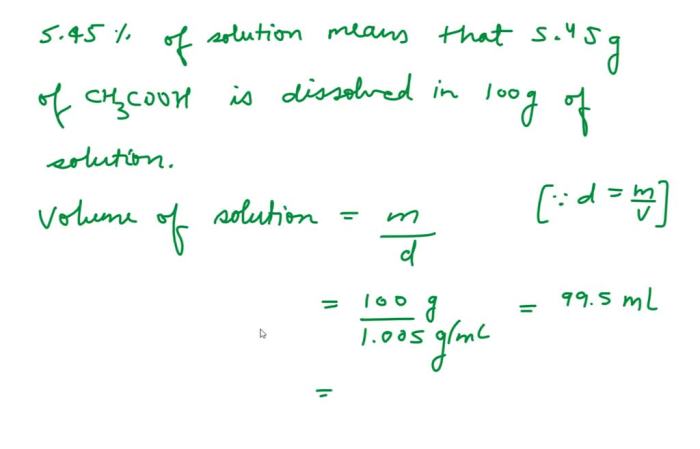 5.45 % of solution means that 5.45 g
of CH₃COOH is dissolved in 100 g of
solution.
Volume of solution = m/d [∵ d = m/v]
= 100 g / 1.005 g/mL = 99.5 mL
=